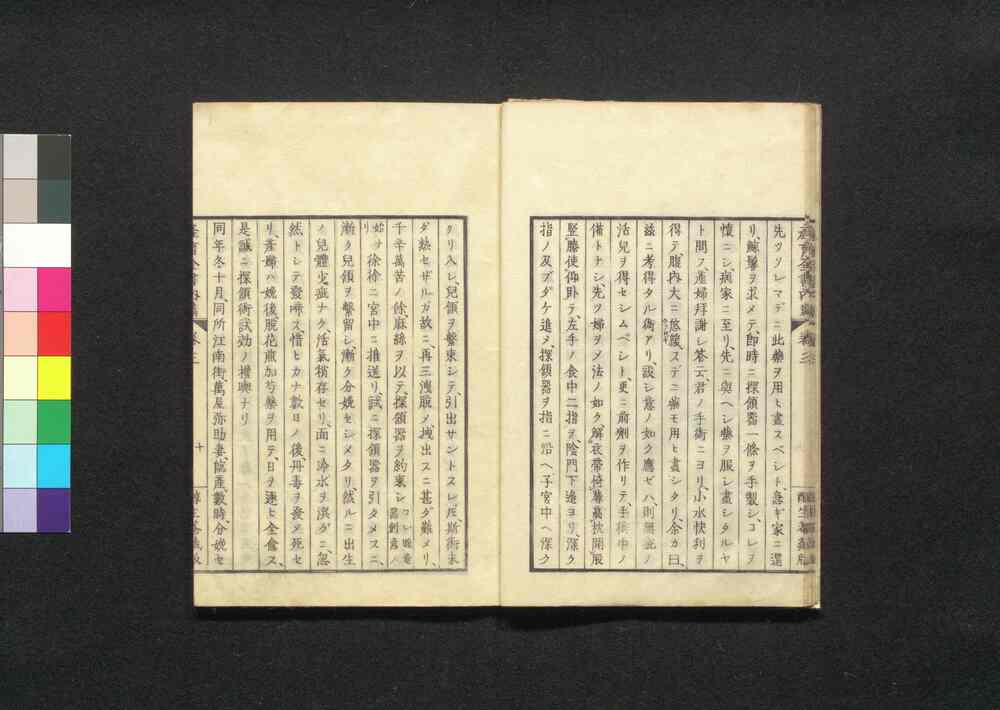 先ツソレマデニ此藥ヲ用ヒ盡スベシト、急ギ家ニ還
リ、鯨鬚ヲ求メテ、即時ニ探頷器一條ヲ手製シ、コレヲ
懷ニシ、病家ニ至リ、先ニ與ヘシ藥ヲ服シ盡シタルヤ
ト問フ、產婦拜謝シ答云、君ノ手術ニヨリ、小水快利ヲ
得テ、腹内大ニ スデニ藥モ用ヒ盡シタリ、余カ曰、
茲ニ考得タル術アリ、設シ意ノ如ク應ゼハ、則無 ノ
活兒ヲ得セシムベシト、更ニ前劑ヲ作リテ、手術中ノ
備トナシ、先ツ婦ヲメ法ノ如ク、解衣帶倚蓐 枕開股
竪膝使仰卧テ、左手ノ食中二指ヲ、陰門下邊ヨリ、深ク
指ノ及ブダケ進メ、探頷器ヲ指ニ沿ヘ、子宮中ヘ深ク
クリ入レ、兒頷ヲ繫束シテ、引出サントスレ𪜈、斯術未
ダ熟セザルガ故ニ、再三洩脱メ、拽出スニ甚ダ難メリ、
千辛萬苦ノ餘、麻絲ヲ以テ、探頷器ヲ約束シ コレ 器創意ノ
始ナリ 徐徐ニ宮中ニ推送リ、試ニ探頷器ヲ引タメスニ、
漸ク兒頷ヲ繫留シ、漸ク分娩セシメタリ、然ルニ出生
ノ兒體少 ナク、活氣猶存セリ、面ニ冷水ヲ潠グニ、忽
然トシテ發啼ス、惜ヒカナ數日ノ後丹毒ヲ發メ死セ
リ、產婦ハ娩後脱花煎加芍藥ヲ用テ、日ヲ逐ヒ全愈ス、
是誠ニ探頷術試効ノ權輿ナリ
同年冬十月、同所江南街、萬屋弥助妻、臨產數時、分娩セ
卷三
十